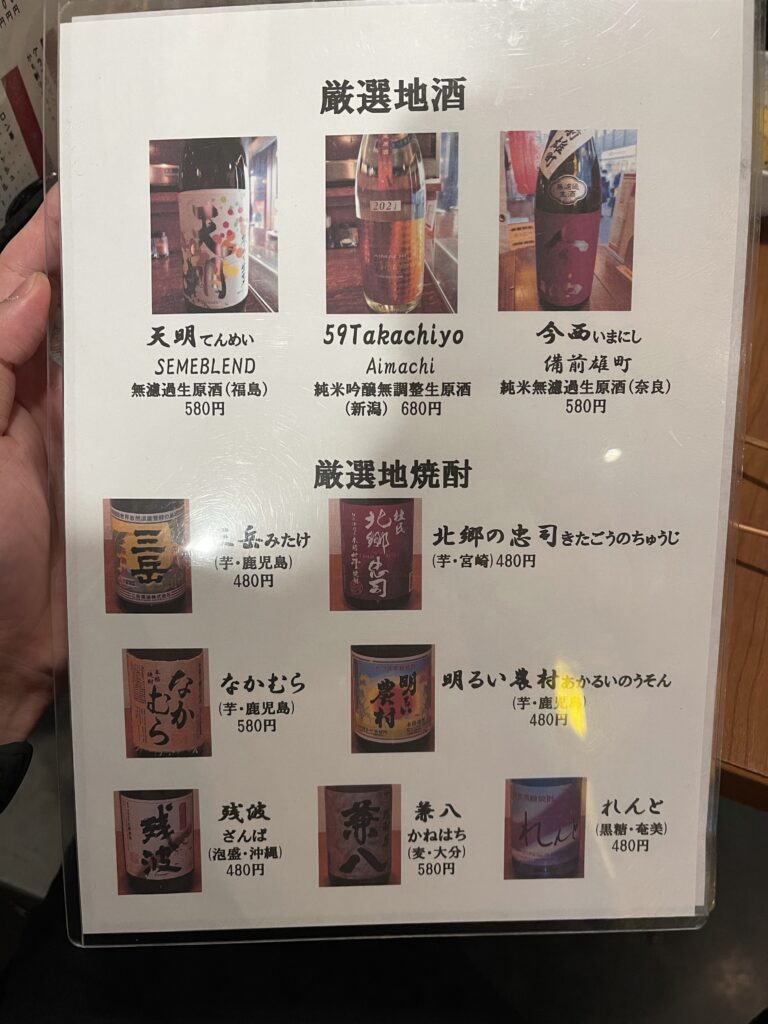 厳選地酒
2021
無濾過
生原酒
天明てんめい
SEMEBLEND
無濾過生原酒(福島)
580円
59Takachiyo
Aimachi
純米吟醸無調整生原酒
(新潟) 680円
今西いまにし
備前雄町
純米無濾過生原酒(奈良)
580円
厳選地焼酎
三岳
三岳みたけ
(芋・鹿児島)
480円
杜氏
北郷
忠司
北郷の忠司きたごうのちゅうじ
(芋・宮崎)480円
本格
焼酎
なか
むら
なかむら
(芋・鹿児島)
580円
明るい
農村
明るい農村あかるいのうそん
(芋・鹿児島)
480円
残波
残波
ざんぱ
(泡盛・沖縄)
480円
兼八
兼八
かねはち
(麦・大分)
580円
れんと
れんと
(黒糖・奄美)
480円